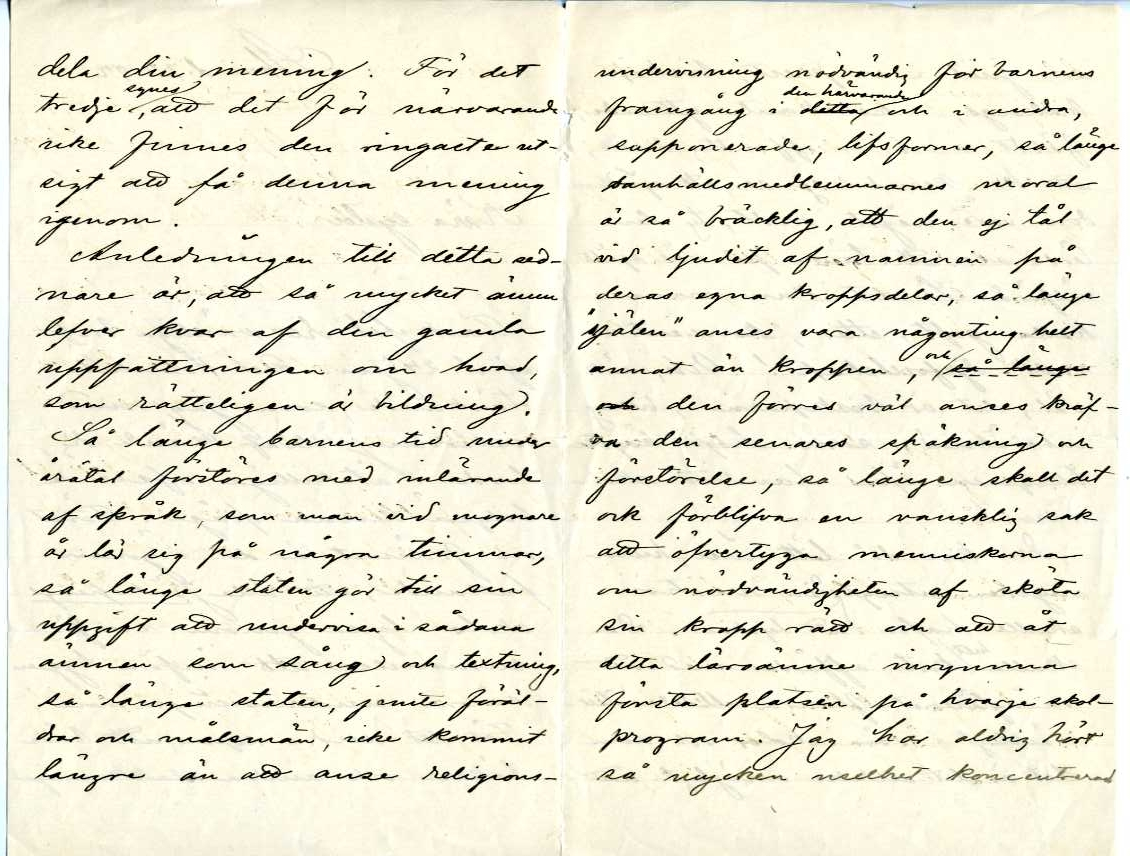 dela din mening. För det
tredje synes, att det för närvarande
icke finnes den ringaste ut-
sigt att få denna mening
igenom.
Anledningen till detta sed-
nare är, att så mycket ännu
lefver kvar af den gamla
uppfattningen om hvad,
som rätteligen är bildning.
Så länge barnens tid under
åratal förstöres med inlärande
af språk, som man vid mognare
år lär sig på några timmar,
så länge staten gör till sin
uppgift att undervisa i sådana
ämnen som sång och textning,
så länge staten, jemte föräl-
drar och målsmän, icke kommit
längre än att anse religions-
undervisning nödvändig för barnens
framgång i detta den härvarande och i andra,
supponerade, lifsformer, så länge
samhällsmedlemmarnes moral
är så bräcklig, att den ej tål
vid ljudet af namnen på
deras egna kroppsdelar, så länge
"själen" anses vara någonting helt
annat än kroppen, och så länge
och den förres väl anses kräf-
va den senares späkning och
förstörelse, så länge skall det
ock förblifva en vansklig sak
att öfvertyga menniskorna
om nödvändigheten af sköta
sin kropp rätt och att åt
detta läroämne inrymma
första platsen på hvarje skol-
program. Jag har aldrig hört
så mycken uselhet koncentrerad